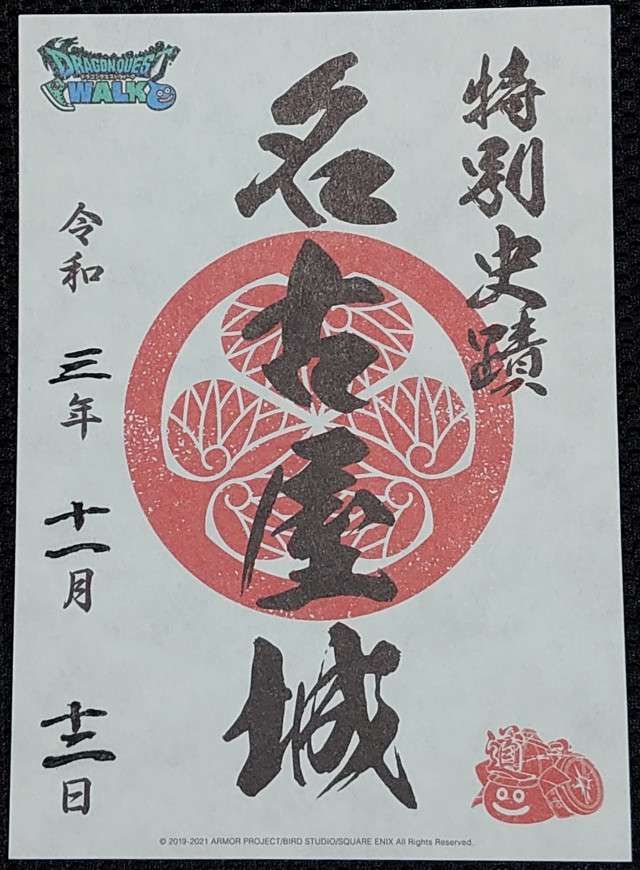 DRAGON QUEST
ドラゴンクエストウォーク
WALK
特別史蹟
名古屋城
令和 三年 十一月 十二日
道
© 2019-2021 ARMOR PROJECT/BIRD STUDIO/SQUARE ENIX All Rights Reserved.